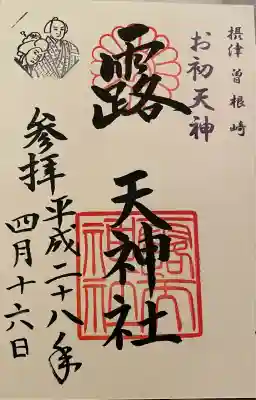 摂津曽根崎
お初天神
露天神社
参拝
平成二十八年
四月十六日